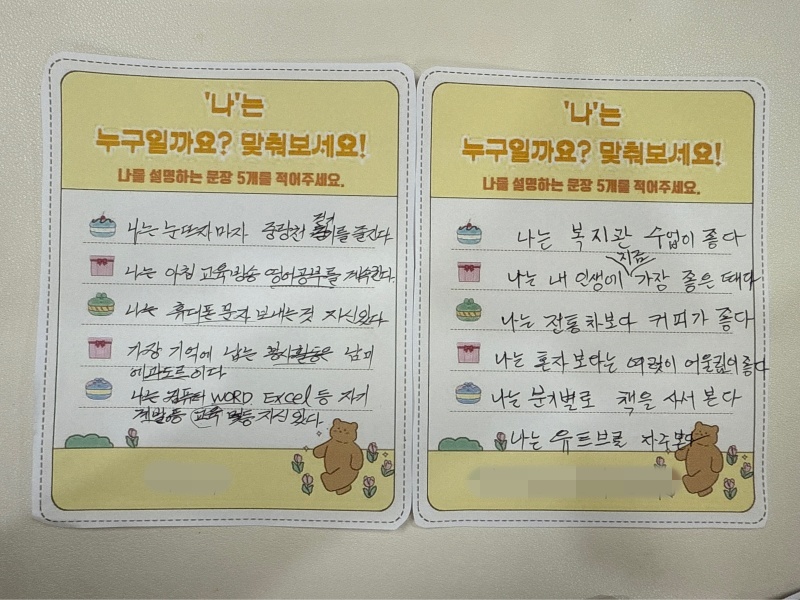 '나'는
누구일까요? 맞춰보세요!
나를 설명하는 문장 5개를 적어주세요.
나는 눈뜨자마자 중랑천 걷기를 즐긴다.
나는 아침 교육방송 영어공부를 계속한다.
나는 휴대폰 문자 보내는것 자신있다
가장 기억에 남는 봉사활동은 남미
에콰도르이다
나는 컴퓨터 WORD Excel 등
교육 자신 있다.
'나'는
누구일까요? 맞춰보세요!
나를 설명하는 문장 5개를 적어주세요.
나는 복지관 수업이 좋다
나는 내 인생에 지금 가장 좋은 때다
나는 전통차보다 커피가 좋다
나는 혼자보다는 여럿이 어울림이 좋다
나는 분기별로 책을 사서 본다
나는 유트브를 자주본다